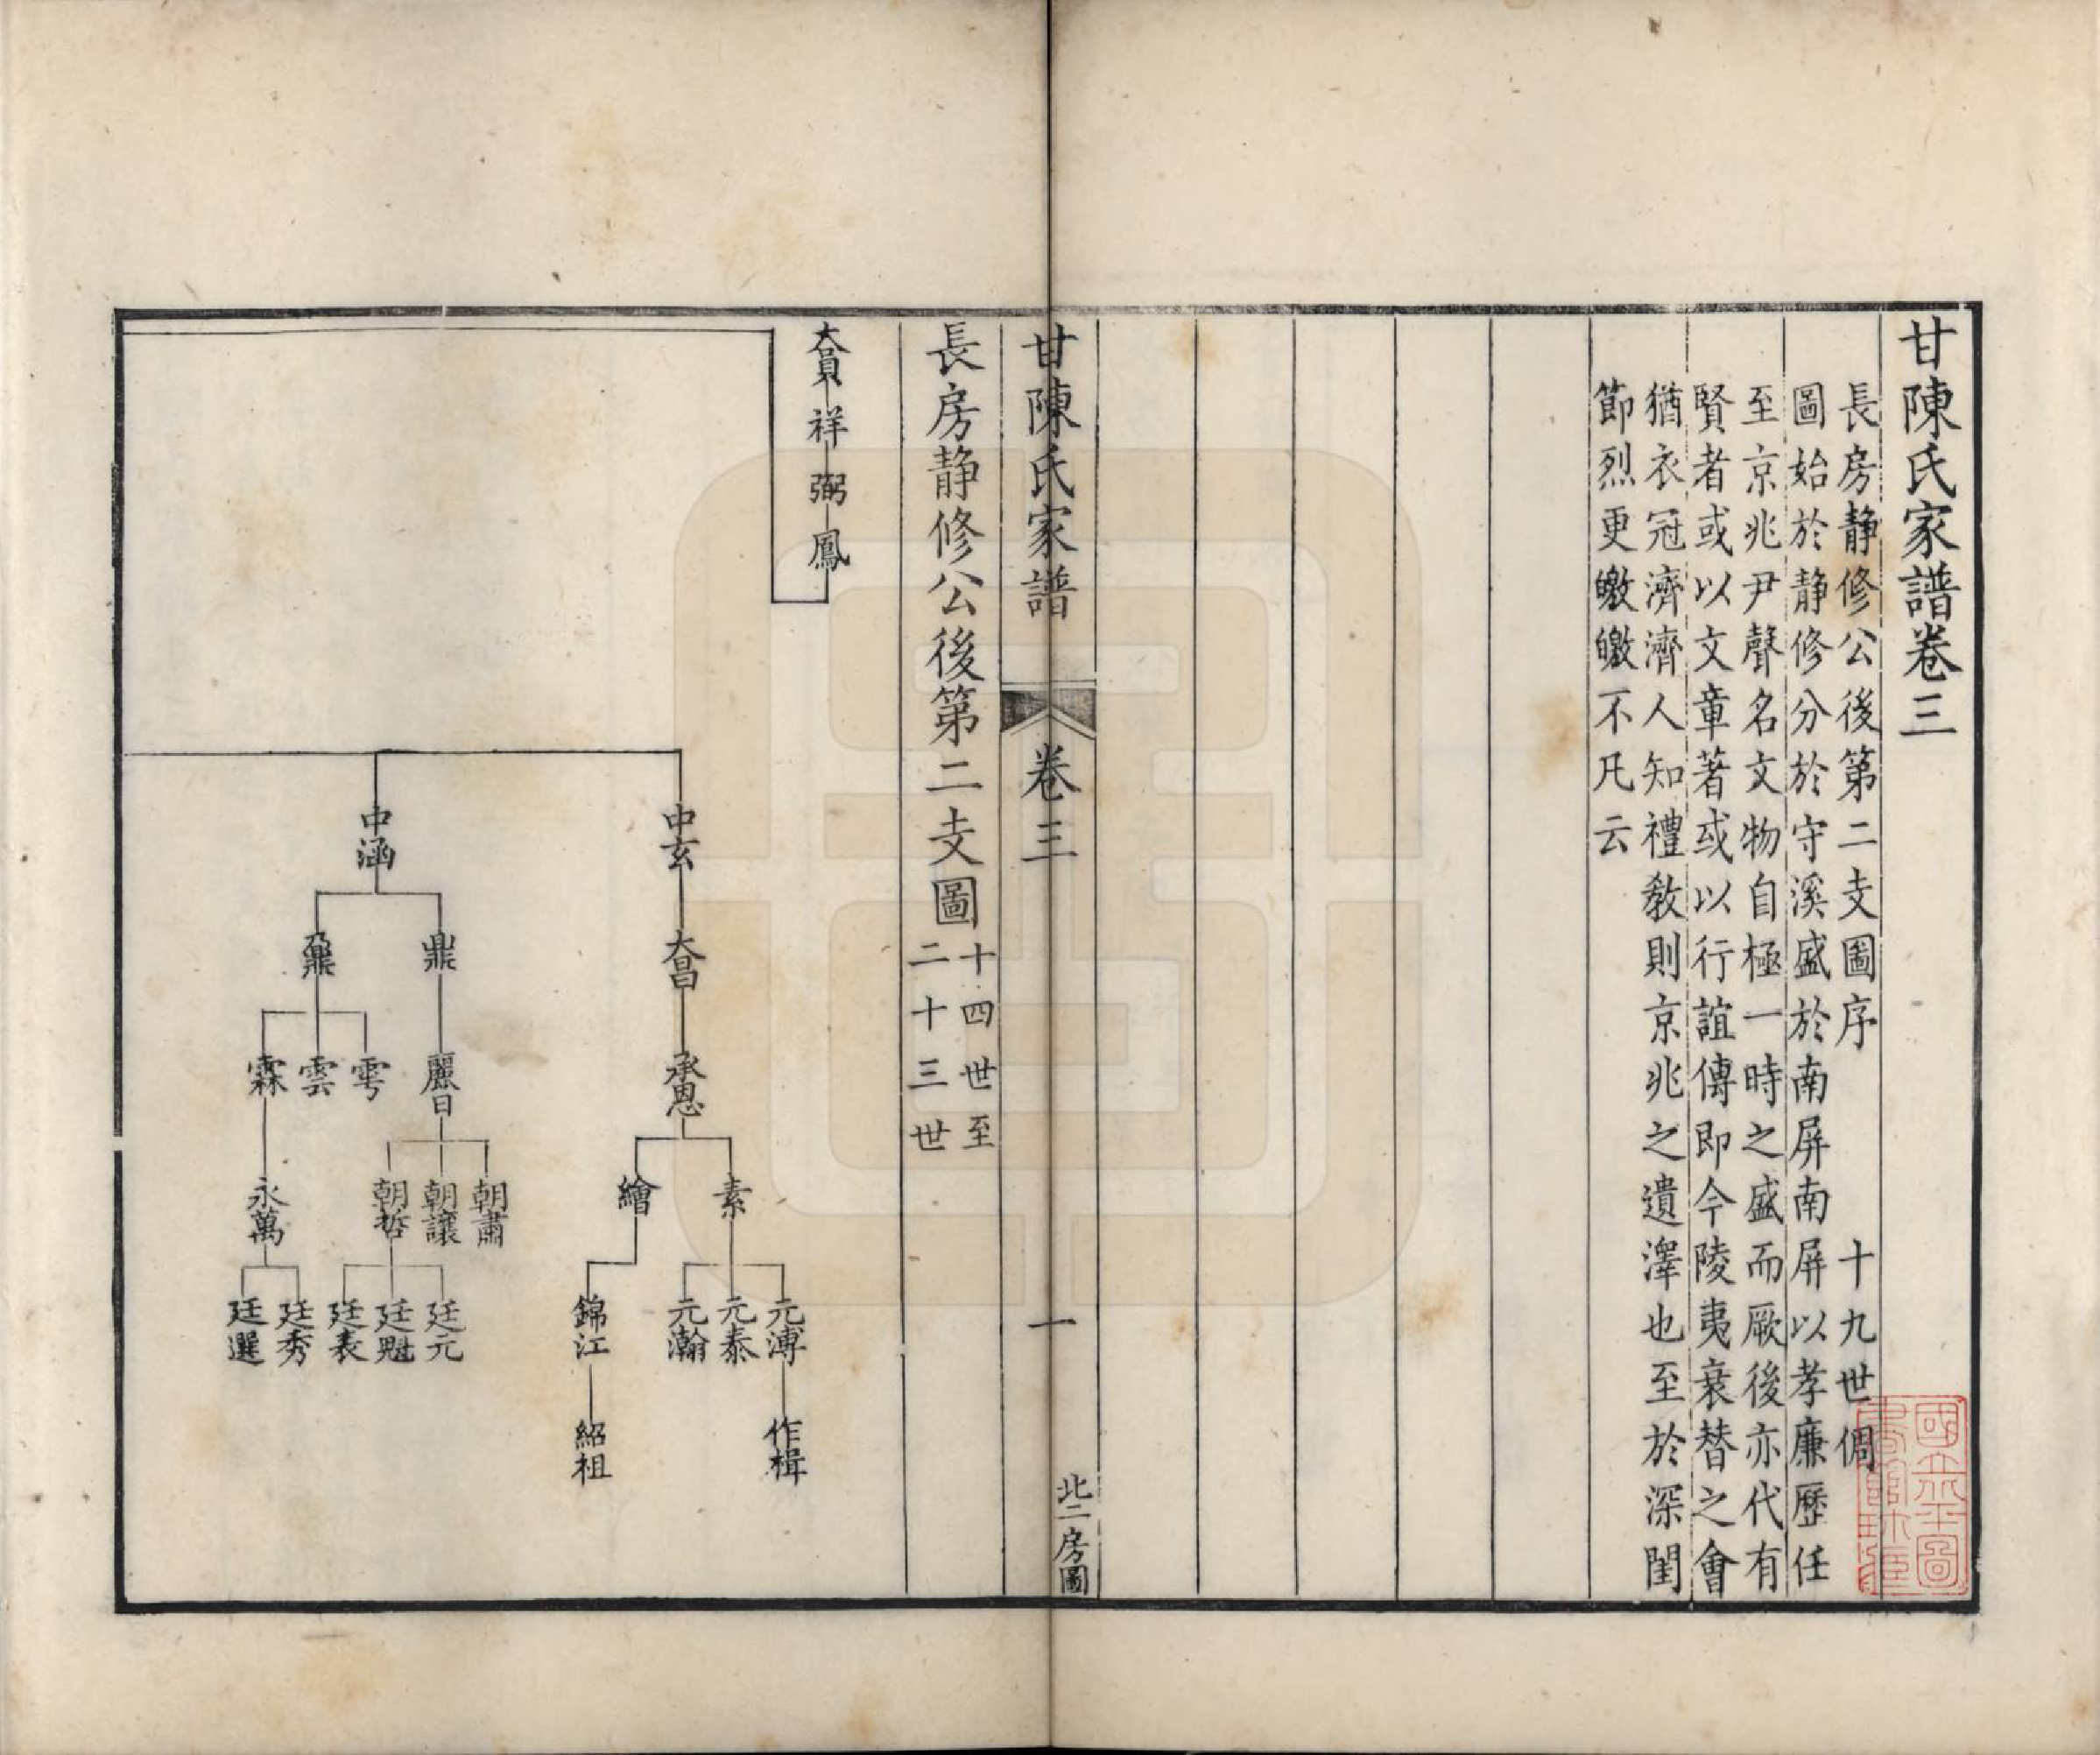 甘陳氏家譜卷三
長房静修公後第二支圖序　十九世倜
圖始於静修分於守溪盛於南屏南屏以孝廉歷任
至京兆尹聲名文物自極一時之盛而厥後亦代有
賢者或以文章著或以行誼傳即今陵夷衰替之會
猶衣冠濟濟人知禮教則京兆之遺澤也至於深閨
節烈更皦皦不凡云
甘陳氏家譜　卷三　一　北二房圖
長房静修公後第二支圖
十四世至
二十三世
祥
弼
鳳
中玄
中涵
大昌
鼎
鼐
承恩
麗日
雩
雲
霖
素
繪
朝肅
朝讓
朝哲
永萬
元溥
元泰
元瀚
錦江
廷元
廷魁
廷表
廷秀
廷選
作楫
紹祖
國立北平圖
書館珍藏